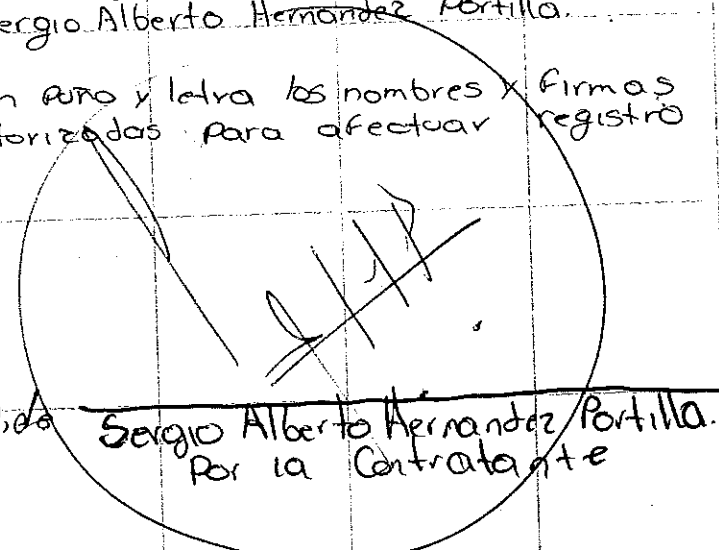 ergio Alberto Hernandez Portilla.
n puño y letra los nombres y firmas
torizadas para afectuar registro
Sergio Alberto Hernandez Portilla.
Por la Contratante